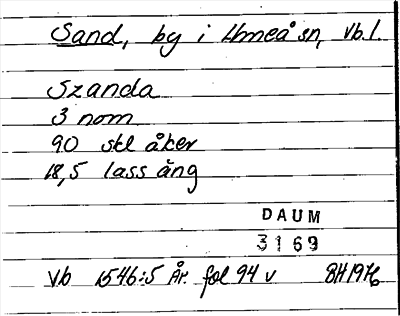 Sand, by i Umeå sn, Vb.l.
Szanda
3 nom
90 skl åker
18,5 lass äng
DAUM
3169
Vb 1546:5 År. fol 94 v BH 1976